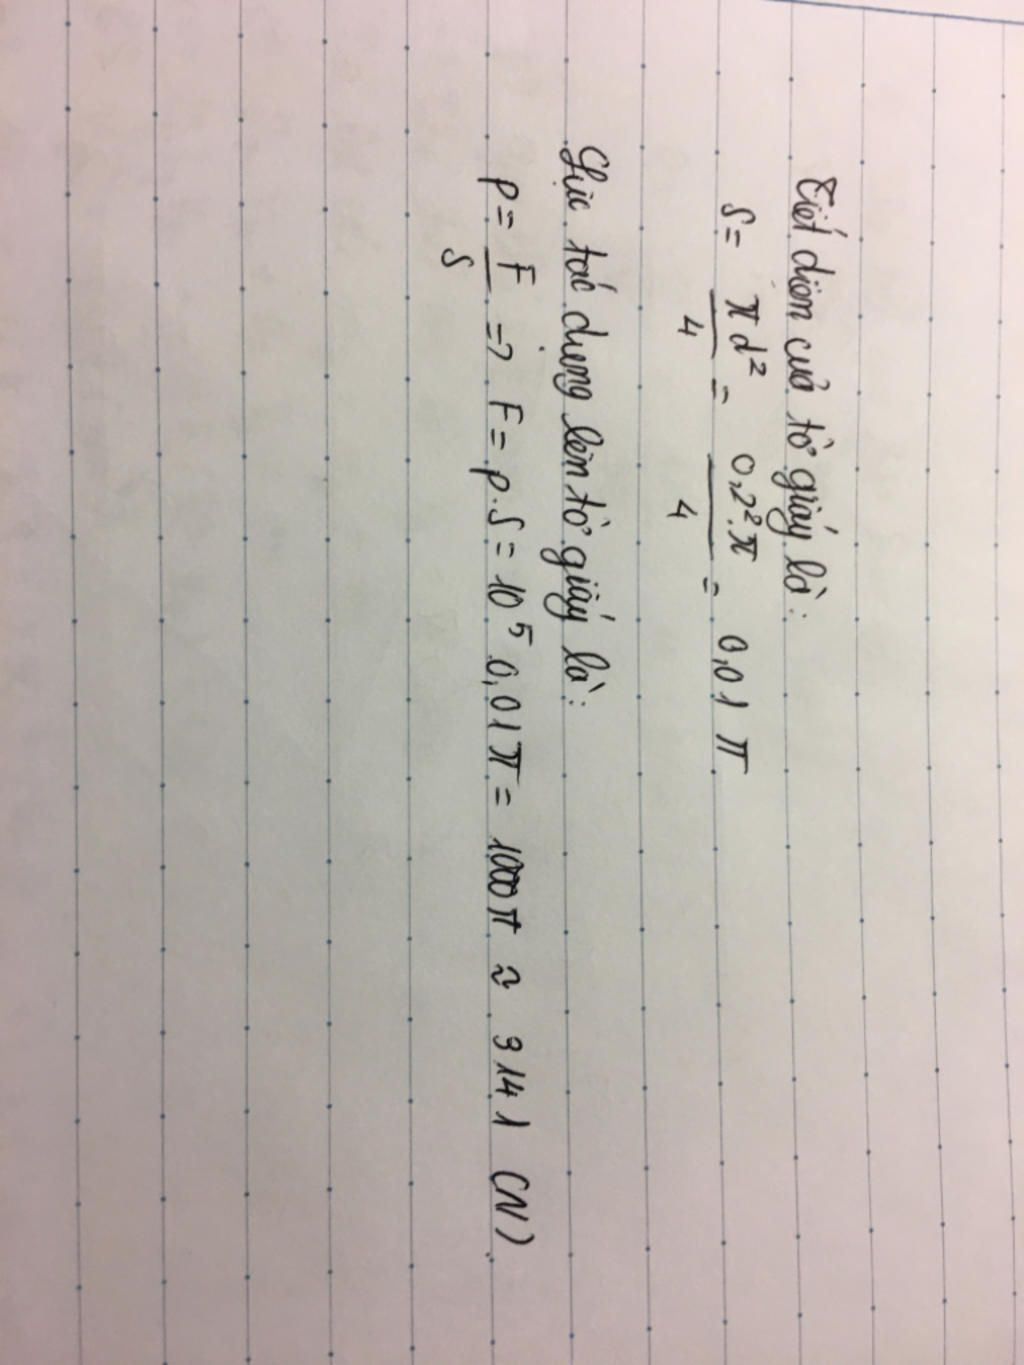 Tiết diện của tờ giấy là:
S = πd²/4 = 0,2².π/4 = 0,01 π
Lực tác dụng lên tờ giấy là:
p = F/S => F = p.S = 10⁵.0,01π = 1000π ≈ 3141 (N)